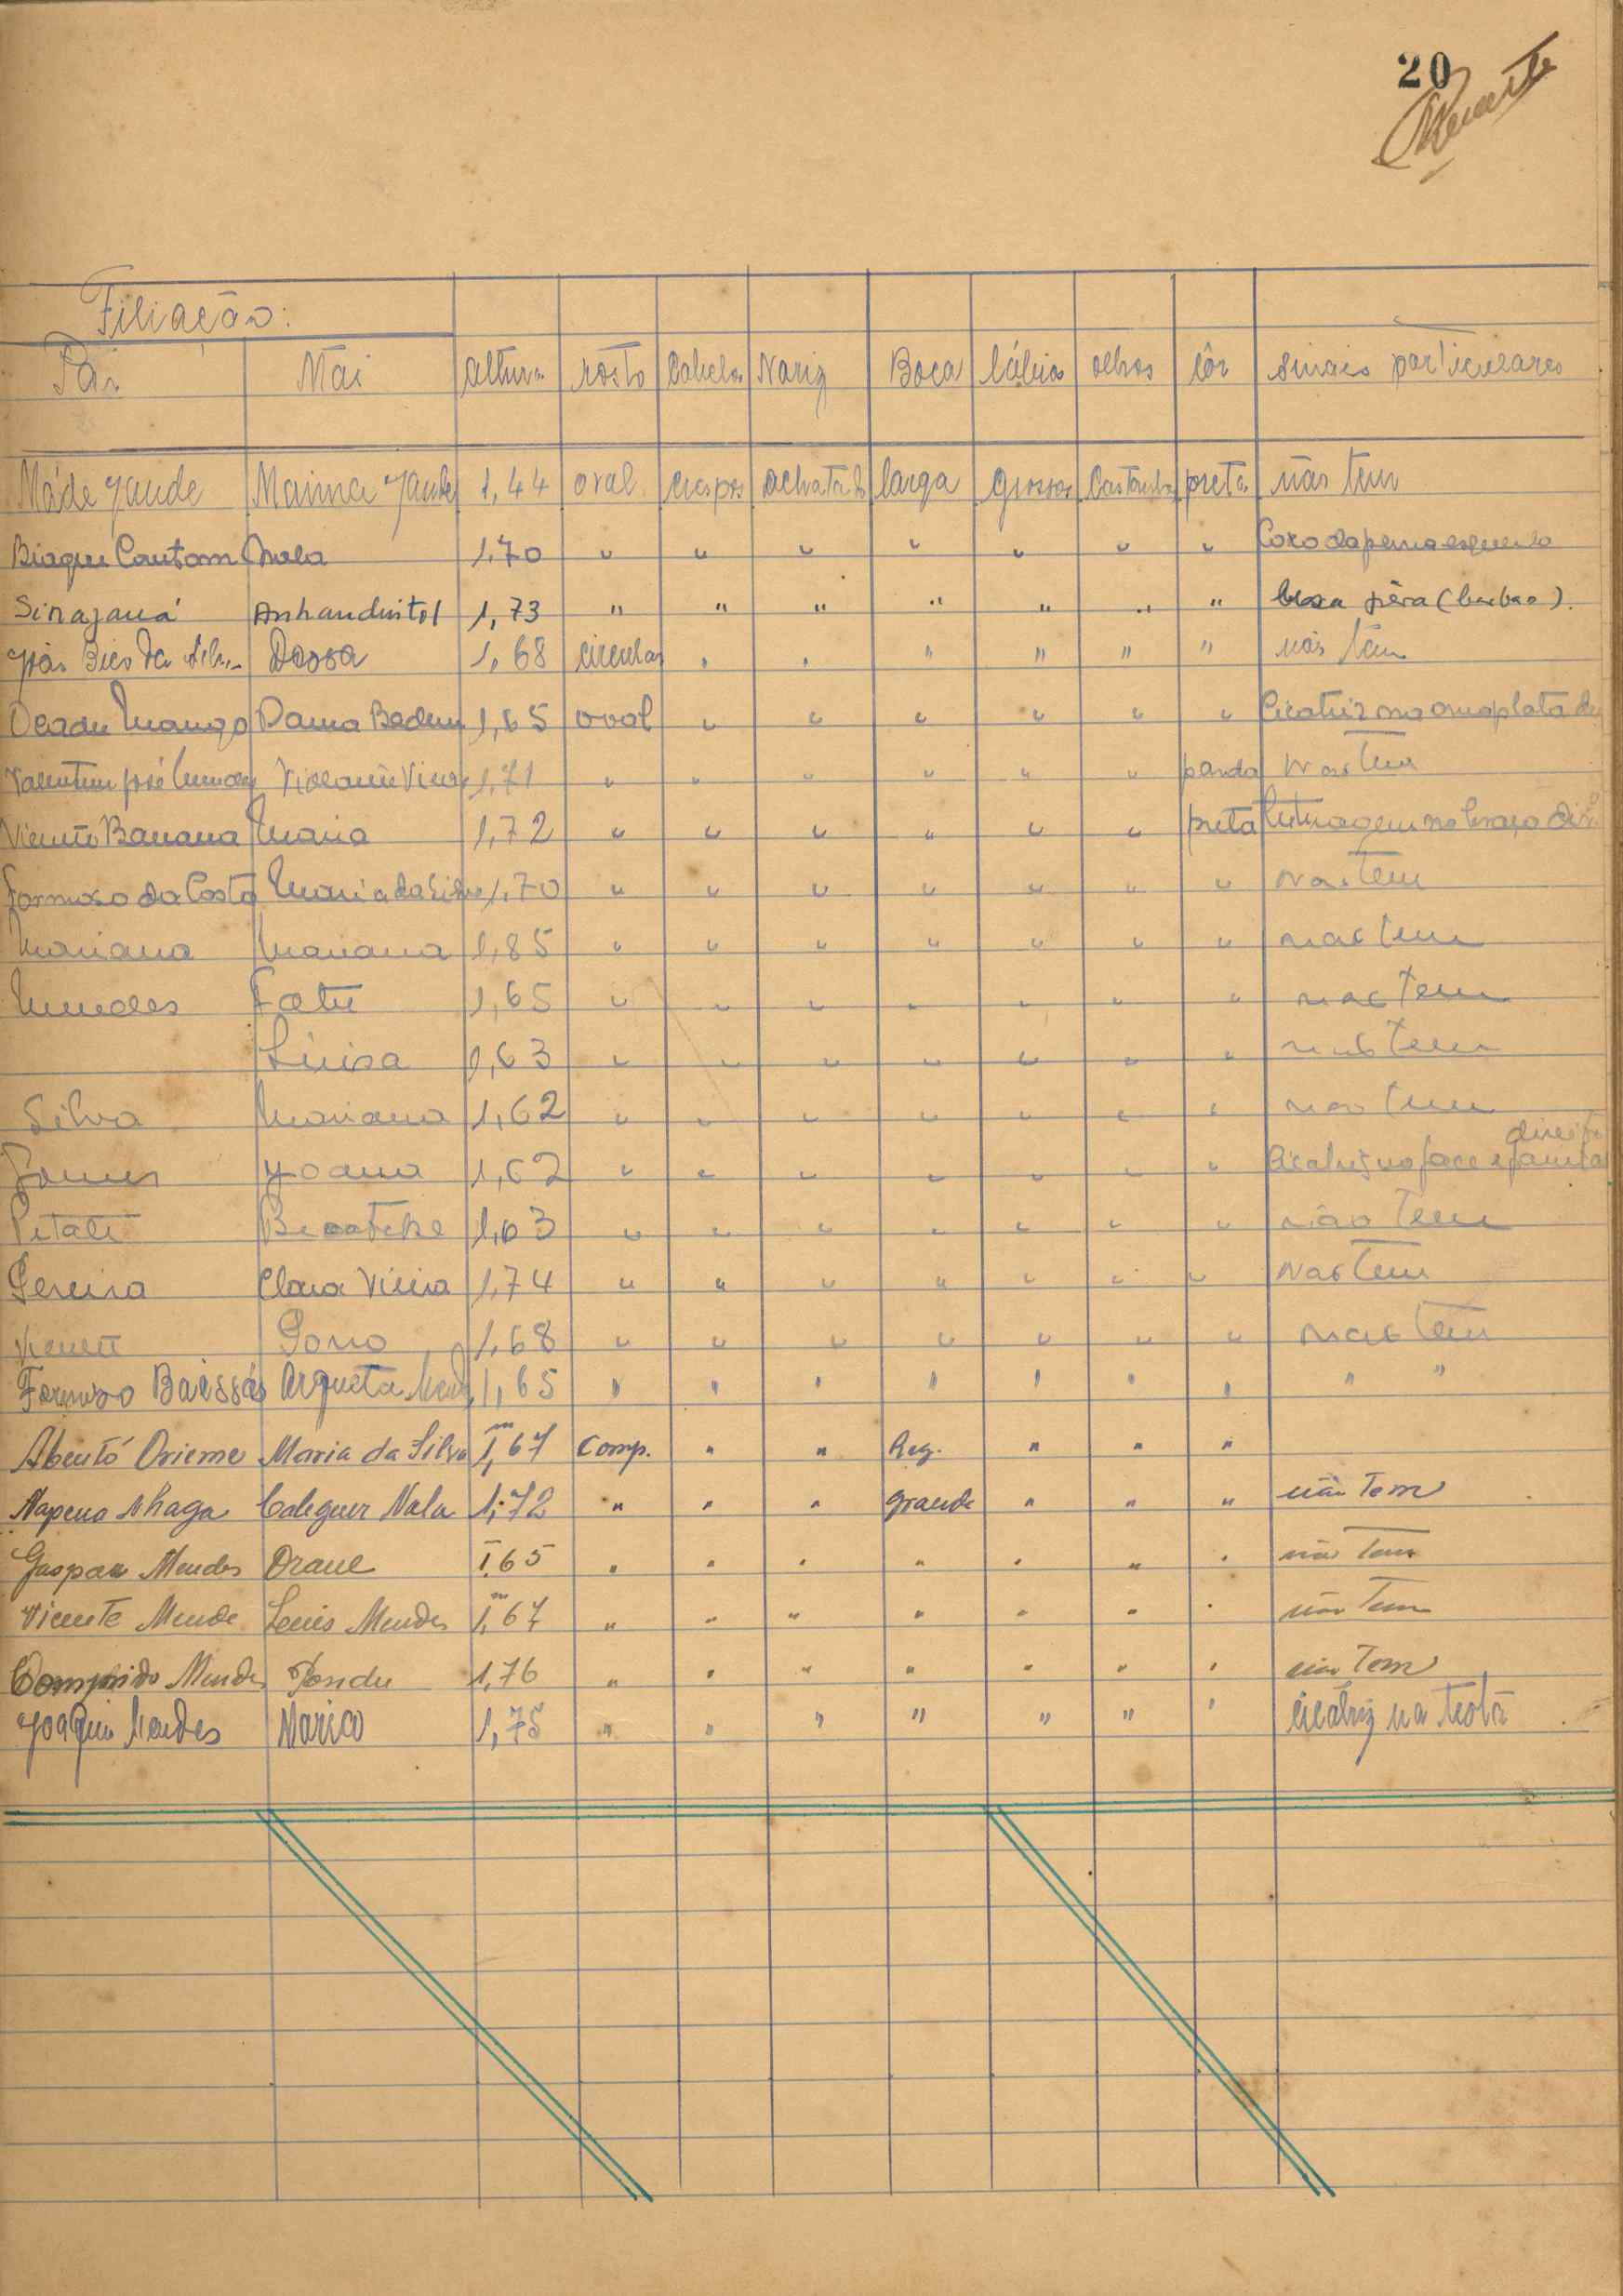 20
Filiação:
Pai Mai altura rosto Cabelos Nariz Boca lábios olhos côr sinais particulares
Máde Jaude Mainna Jaude 1,44 oval crespos achatado larga grossos Castanhos preta não tem
Biaque Cantom Nala 1,70 " " " " " " " Coxo da perna esquerda
Sinajauá Anhanduntol 1,73 " " " " " " " usa pêra (barbas).
João Bico da Silva Doosa 1,68 circular " " " " " " não tem
Mango Dama Badem 1,65 oval " " " " " " Cicatriz na omoplata
Valentim José Mendes Vieira 1,71 " " " " " " parda Não tem
Vicente Banana Maria 1,72 " " " " " " preta tatuagem no braço
Formoso da Costa Maria da Silva 1,70 " " " " " " " Não tem
Mariana Mariana 1,85 " " " " " " " não tem
Mendes Fatu 1,65 " " " " " " " não tem
Luisa 1,63 " " " " " " " não tem
Silva Mariana 1,62 " " " " " " " não tem
Gomes Joana 1,62 " " " " " " " Cicatriz na face direita
1,63 " " " " " " " não tem
Pereira Clara Vieira 1,74 " " " " " " " Não tem
Vicente 1,68 " " " " " " " não tem
Formoso Baissás Arqueta 1,65 " " " " " " " " "
Abentó Orieme Maria da Silva 1,67 Comp. " " Reg. " " "
Napena Nhaga Caleguer Nala 1,72 " " " grande " " " não tem
Gaspar Mendes Draul 1,65 " " " " " " " não tem
Vicente Mende Leuis Mendes 1,67 " " " " " " " não tem
Comprido Mendes Pondu 1,76 " " " " " " " não tem
Joaquim Mendes Narico 1,75 " " " " " " " cicatriz na testa